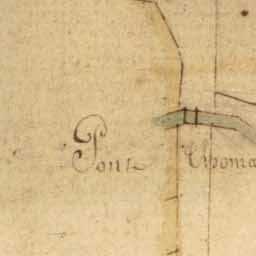 Pont Thoma